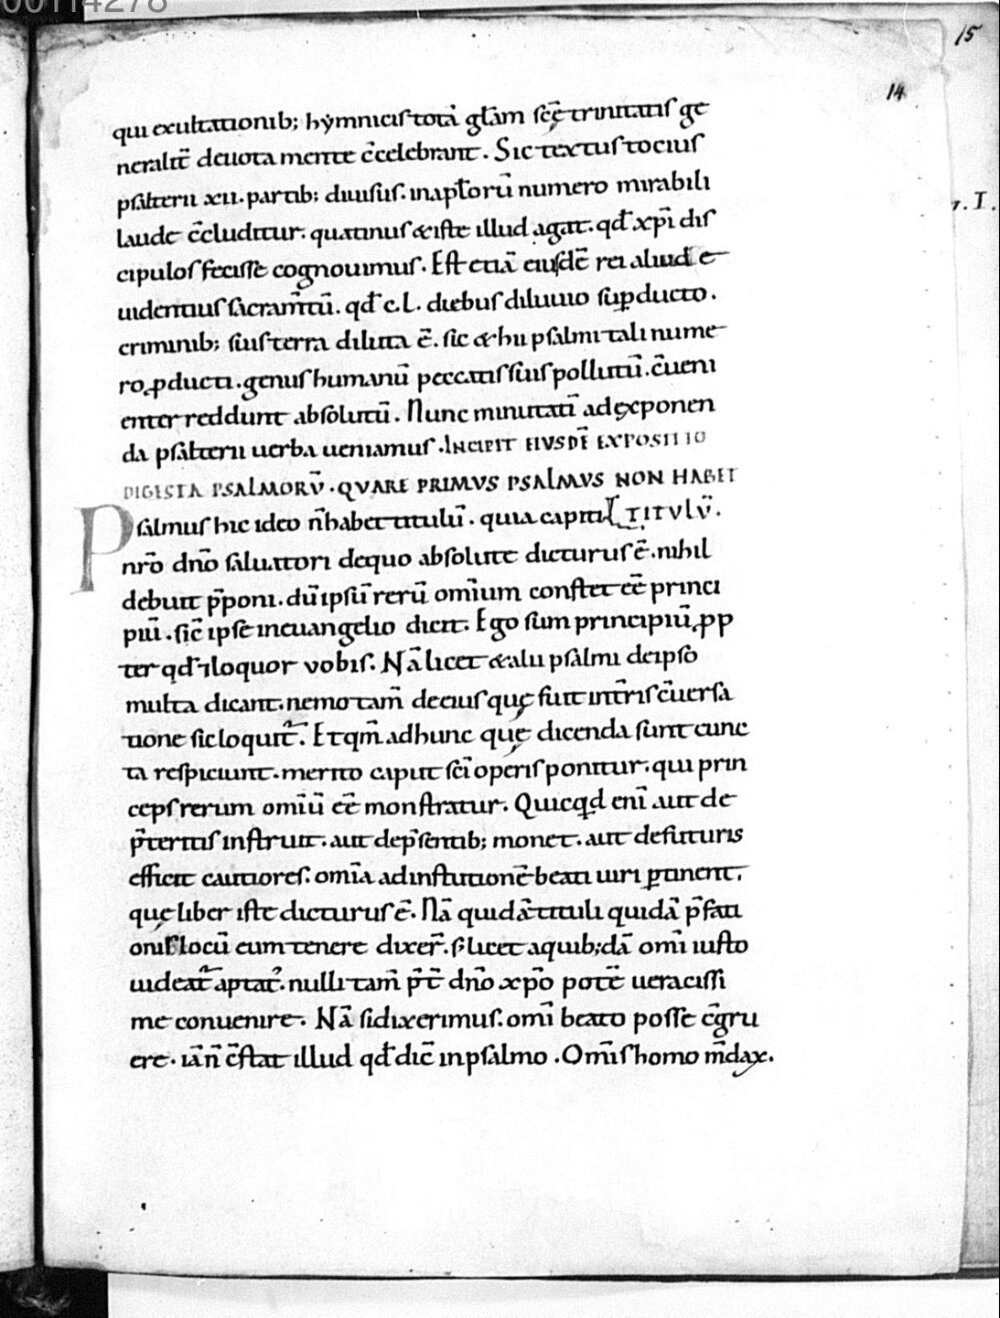 00114278
15
14
qui exultationib; hẏmnicis totā gl̄am sc̄ę trinitatis ge
neralit̄ deuota mente c̄celebrant. Sic textus tocius
psalterii xii. partib; diuisus. in aptorū numero mirabili
laude c̄cluditur. quatinus & iste illud agat. qđ xp̄i dis
cipulos fecisse cognouimus. Est etiā eiusdē rei aliud e
uidentius sacram̄tū. qđ c.L. diebus diluuio sup̱ducto.
criminib; suis terra diluta ē. sic & hii psalmi tali nume
ro ꝓducti. genus humanū peccatis suis pollutū. c̄ueni
enter reddunt absolutū. Nunc minutati ad exponen
da psalterii uerba ueniamus. INCIPIT EIVSDĒ EXPOSITIO
DIGESTA PSALMORV̄. QVARE PRIMVS PSALMVS NON HABET
Psalmus hic ideo n̄ habet titulū. quia capiti TITVLV̄.
nr̄o dn̄o saluatori de quo absolute dicturus ē. nihil
debuit p̄poni. dū ipsū rerū omīum constet eē princi
piū. sic̄ ipse in euangelio dicit. Ego sum principiū. ꝓp
ter qđ ⁊ loquor vobis. Nā licet & alii psalmi de ipso
multa dicant. nemo tam̄ de eius quę fuit in tr̄is c̄uersa
tione sic loquit᷑. Et qm̄ ad hunc quę dicenda sunt cunc
ta respiciunt. merito caput sc̄i operis ponitur. qui prin
ceps rerum omīū eē monstratur. Quicqd enī aut de
p̄teritis instruit. aut de p̄sentib; monet. aut de futuris
efficit cautiores. omīa ad instructionē beati uiri ꝑtinent.
quę liber iste dicturus ē. Nā quidā tituli quidā p̄fati
onis locū eum tenere dixer̄. s; licet a quib;dā omī iusto
uideat᷑ aptat᷑. nulli tam̄ p̄t̄ dn̄o xp̄o potē ueracissi
me conuenire. Nā si dixerimus. omī beato posse c̄gru
ere. iā n̄ c̄stat illud qđ dic̄ in psalmo. Omīs homo m̄dax.
.I.